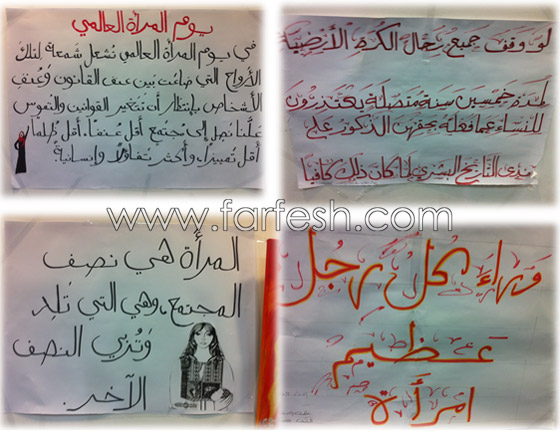 يوم المرأة العالمي
في يوم المرأة العالمي نُشعل شمعة لتلك
الأرواح التي ضاعت بين عنف القانون وعنف
الأشخاص بإنتظار أن تتغير القوانين والنفوس
علّنا نصل إلى مجتمع أقل عُنفاً، أقل ظُلماً
أقل تمييزاً، وأكثر تفاؤلاً وإنسانية!
لو وقف جميع رجال الكرة الأرضية
لمدة خمسين سنة متصلة يعتذرون
للنساء عما فعله بحقهن الذكور على
مدى التاريخ البشري لما كان ذلك كافياً
www.farfesh.com
المرأة هي نصف
المجتمع، وهي التي تَلِد
وَتُربي النصف
الآخر.
وَراءَ كل رجل
عظيم
امرأة